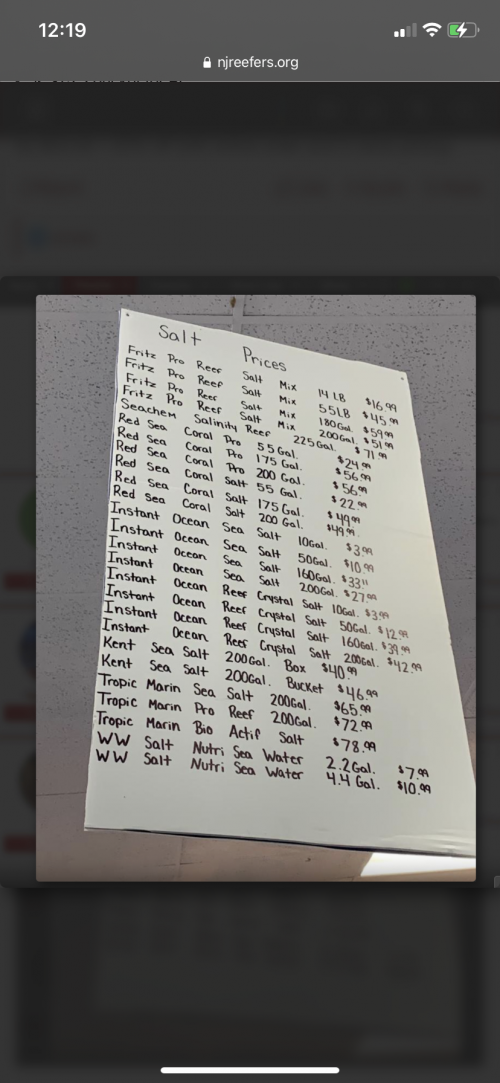 12:19
njreefers.org
Salt Prices
Fritz Pro Reef Salt Mix 14 LB $16.99
Fritz Pro Reef Salt Mix 55LB $45.99
Fritz Pro Reef Salt Mix 180Gal. $59.99
Fritz Pro Reef Salt Mix 200Gal. $51.99
Seachem Salinity Reef 225Gal. $71.99
Red Sea Coral Pro 55Gal. $24.99
Red Sea Coral Pro 175 Gal. $56.99
Red Sea Coral Pro 200 Gal. $56.99
Red Sea Coral Salt 55 Gal. $22.99
Red Sea Coral Salt 175Gal. $49.99
Red Sea Coral Salt 200 Gal. $49.99
Instant Ocean Sea Salt 10Gal. $3.99
Instant Ocean Sea Salt 50Gal. $10.99
Instant Ocean Sea Salt 160Gal. $33.11
Instant Ocean Sea Salt 200Gal. $27.99
Instant Ocean Reef Crystal Salt 10Gal. $3.99
Instant Ocean Reef Crystal Salt 50Gal. $12.99
Instant Ocean Reef Crystal Salt 160Gal. $39.99
Instant Ocean Reef Crystal Salt 200Gal. $42.99
Kent Sea Salt 200Gal. Box $40.99
Kent Sea Salt 200Gal. Bucket $46.99
Tropic Marin Sea Salt 200Gal. $65.99
Tropic Marin Pro Reef 200Gal. $72.99
Tropic Marin Bio Actif Salt $78.99
WW Salt Nutri Sea Water 2.2Gal. $7.99
WW Salt Nutri Sea Water 4.4 Gal. $10.99